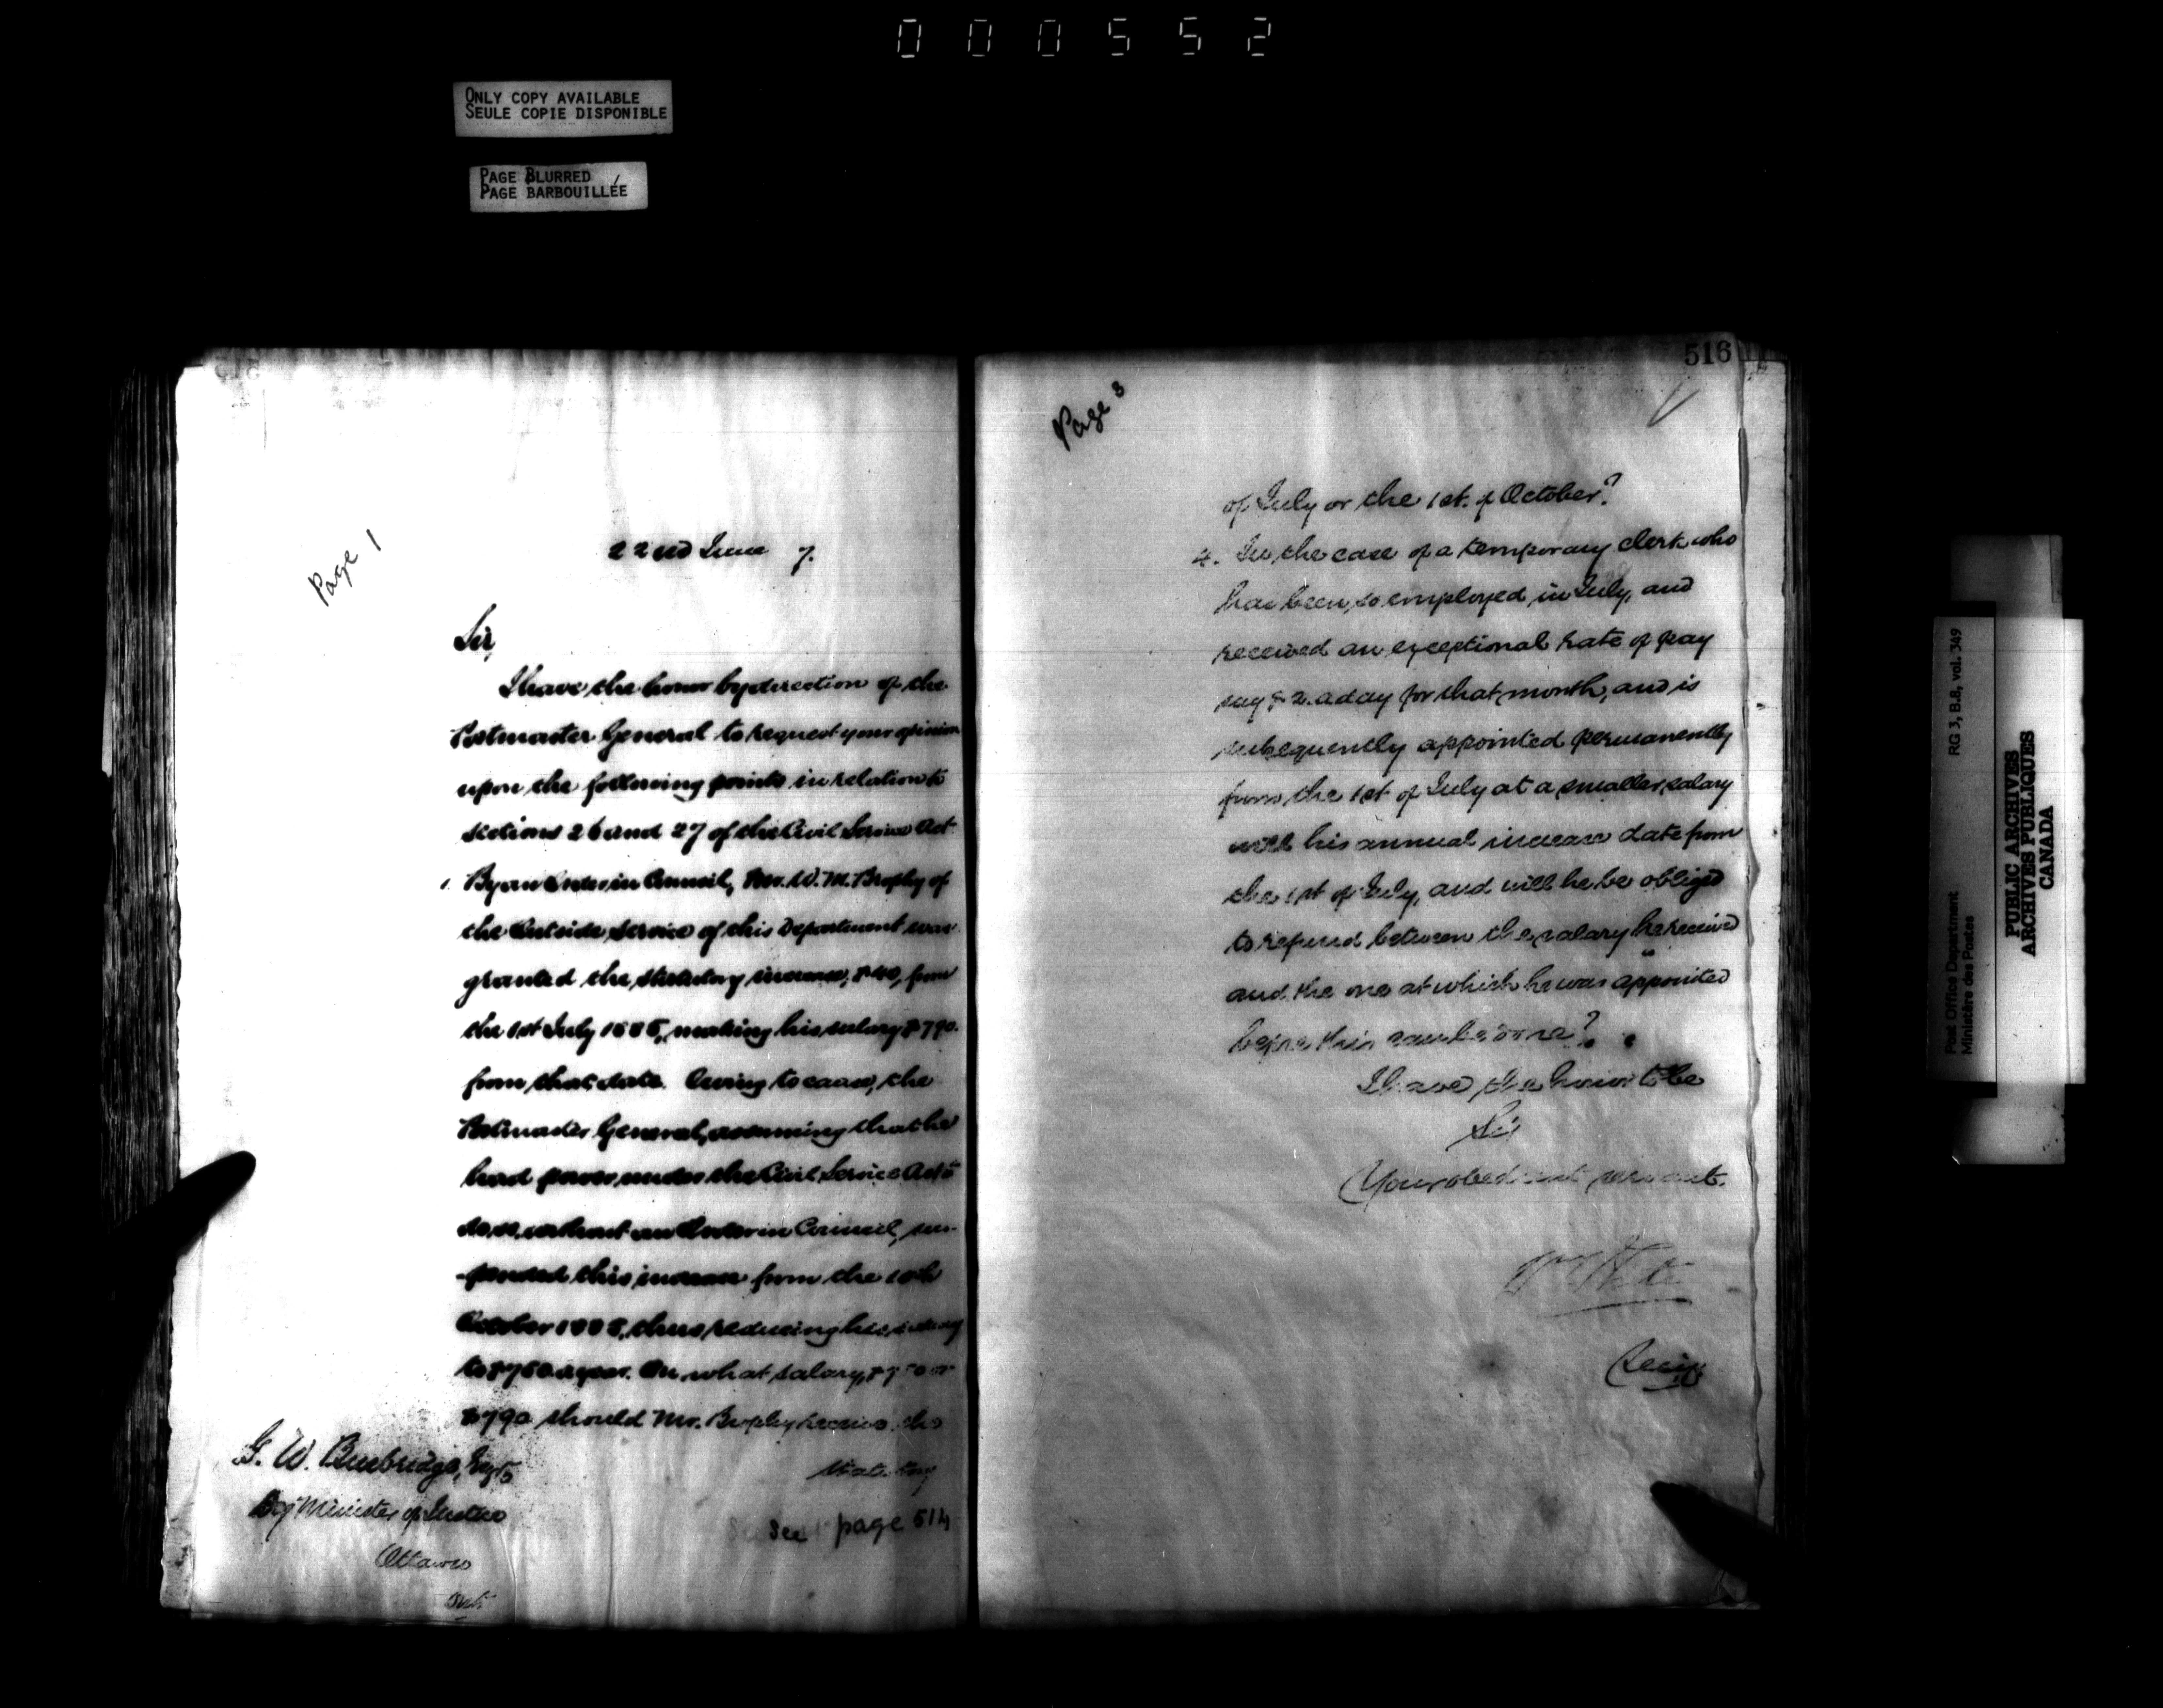 000552
ONLY COPY AVAILABLE
SEULE COPIE DISPONIBLE
PAGE BLURRED
PAGE BARBOUILLÉE
Page 1
22nd June 7.
Sir,
I have the honor by direction of the
Postmaster General to request your opinion
upon the following points in relation to
sections 26 and 27 of the Civil Service Act
1. By an Order in Council, Mr. W. M. Brophy of
the Outside Service of this Department was
granted the statutory increase, $40, from
the 1st July 1886, making his salary $790.
from that date. Owing to cause, the
Postmaster General, assuming that he
had power under the Civil Service Act to
do so, without an Order in Council, sus-
-pended this increase from the
October 1886, thus reducing his salary
to $750 a year. On what salary, $750 or
$790 should Mr. Brophy receive the
statutory
G. W. Burbidge, Esq.
Dep Minister of Justice
Ottawa
Ont
See page 514
516
Page 3
of July or the 1st. of October?
4. In the case of a temporary clerk who
has been so employed in July, and
received an exceptional rate of pay
say $2. a day for that month, and is
subsequently appointed permanently
from the 1st of July at a smaller salary
will his annual increase date from
the 1st of July, and will he be obliged
to refund between the salary he received
and the one at which he was appointed
before this can be done?
I have the honor to be
Sir
Your obedient servant.
Secy
RG 3, B.8, vol. 349
Post Office Department
Ministère des Postes
PUBLIC ARCHIVES
ARCHIVES PUBLIQUES
CANADA